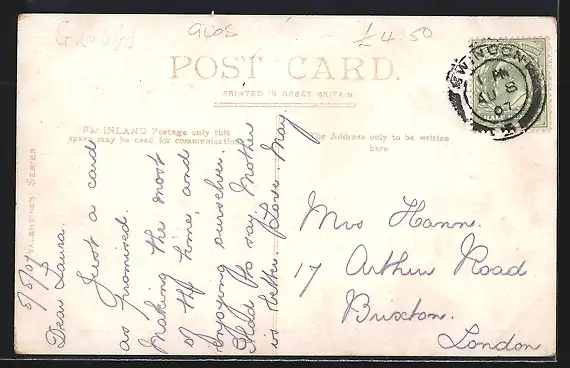 Glos
£4.50
POST CARD.
PRINTED IN GREAT BRITAIN
For INLAND Postage only this
space may be used for communication
The Address only to be written
here
VALENTINE'S SERIES
SWINDON
AU 5
07
HALF
Mrs Hann.
17 Arthur Road
Brixton.
London
Dear Laura.
Just a card
as promised.
Making the most
of the time, and
enjoying ourselves.
Glad to say Mother
is better. Love. May